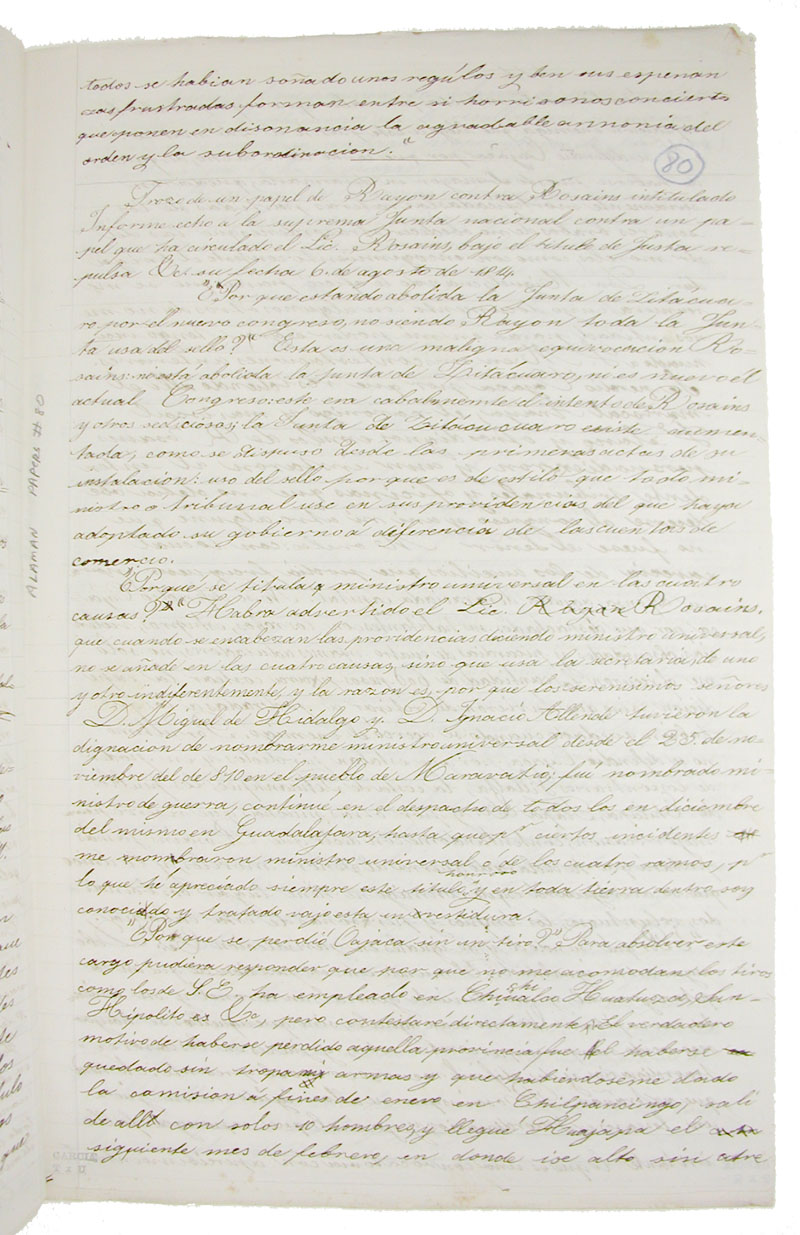 todos se habian soñado unos regúlos y ben sus esperan
zas frustradas forman entre si horrisonos concierto
que ponen en disonancia la agradable armonía del
orden y la subordinacion."
80
Trozo de un papel de Rayon contra Rosains intitulado
Informe echo a la suprema Junta nacional contra un pa-
pel que ha circulado el Lic. Rosains, bajo el titulo de Justa re-
pulsa &c. su fecha 6. de agosto de 1814.
"Por que estando abolida la Junta de Zitácua-
ro, por el nuevo congreso, no siendo Rayon toda la Jun-
ta usa del sello?" Esta es una maligna equivocacion Ro-
sains: no está abolida la junta de Zitácuaro, ni es nuevo el
actual Congreso: este era cabalmente el intento de Rosains
y otros sediciosos; la Junta de Zitácucuaro existe aumen-
tada, como se dispuso desde las primeras actas de su
instalacion: uso del sello por que es de estilo que todo mi-
nistro o tribunal use en sus providencias del que haya
adoptado su gobierno á diferencia de las cuentas de
comercio.
"Porqué se titula ministro universal en las cuatro
causas?" Habra advertido el Lic. Rayon Rosains,
que cuando se encabezan las providencias diciendo ministro universal,
no se añade en las cuatro causas, sino que usa la secretaria, de uno
y otro indiferentemente, y la razon es, por que los serenisimos señores
D. Miguel de Hidalgo y D. Ignacio Allende tuvieron la
dignacion de nombrarme ministro universal desde el 25. de no-
viembre del de 810 en el pueblo de Maravatio; fuí nombrado mi-
nistro de guerra, continué en el despacho de todos los en diciembre
del mismo en Guadalajára, hasta que pr. ciertos incidentes
me nombraron ministro universal ó de los cuatro ramos, pr.
honrroso
lo que hé apreciado siempre este titulo, y en toda tierra dentro soy
conocido y tratado vajo esta investidura.
"Por que se perdió Oajaca sin un tiro?" Para absolver este
cargo pudiera responder que por que no me acomodan los tiros
como los de S. E. ha empleado en Chiualco Huatuzco, San-
Hipolito es &c, pero contestaré directamente. El verdadero
motivo de haberse perdido aquella provincia fue el haberse
quedado sin tropa ni armas y que habiendoseme dado
la comision á fines de enero en Chilpancingo, sali
de allí con solos 10 hombres, y llegué Huajapa el
siguiente mes de febrero, en donde ise alto sin atre
ALAMAN PAPERS #80